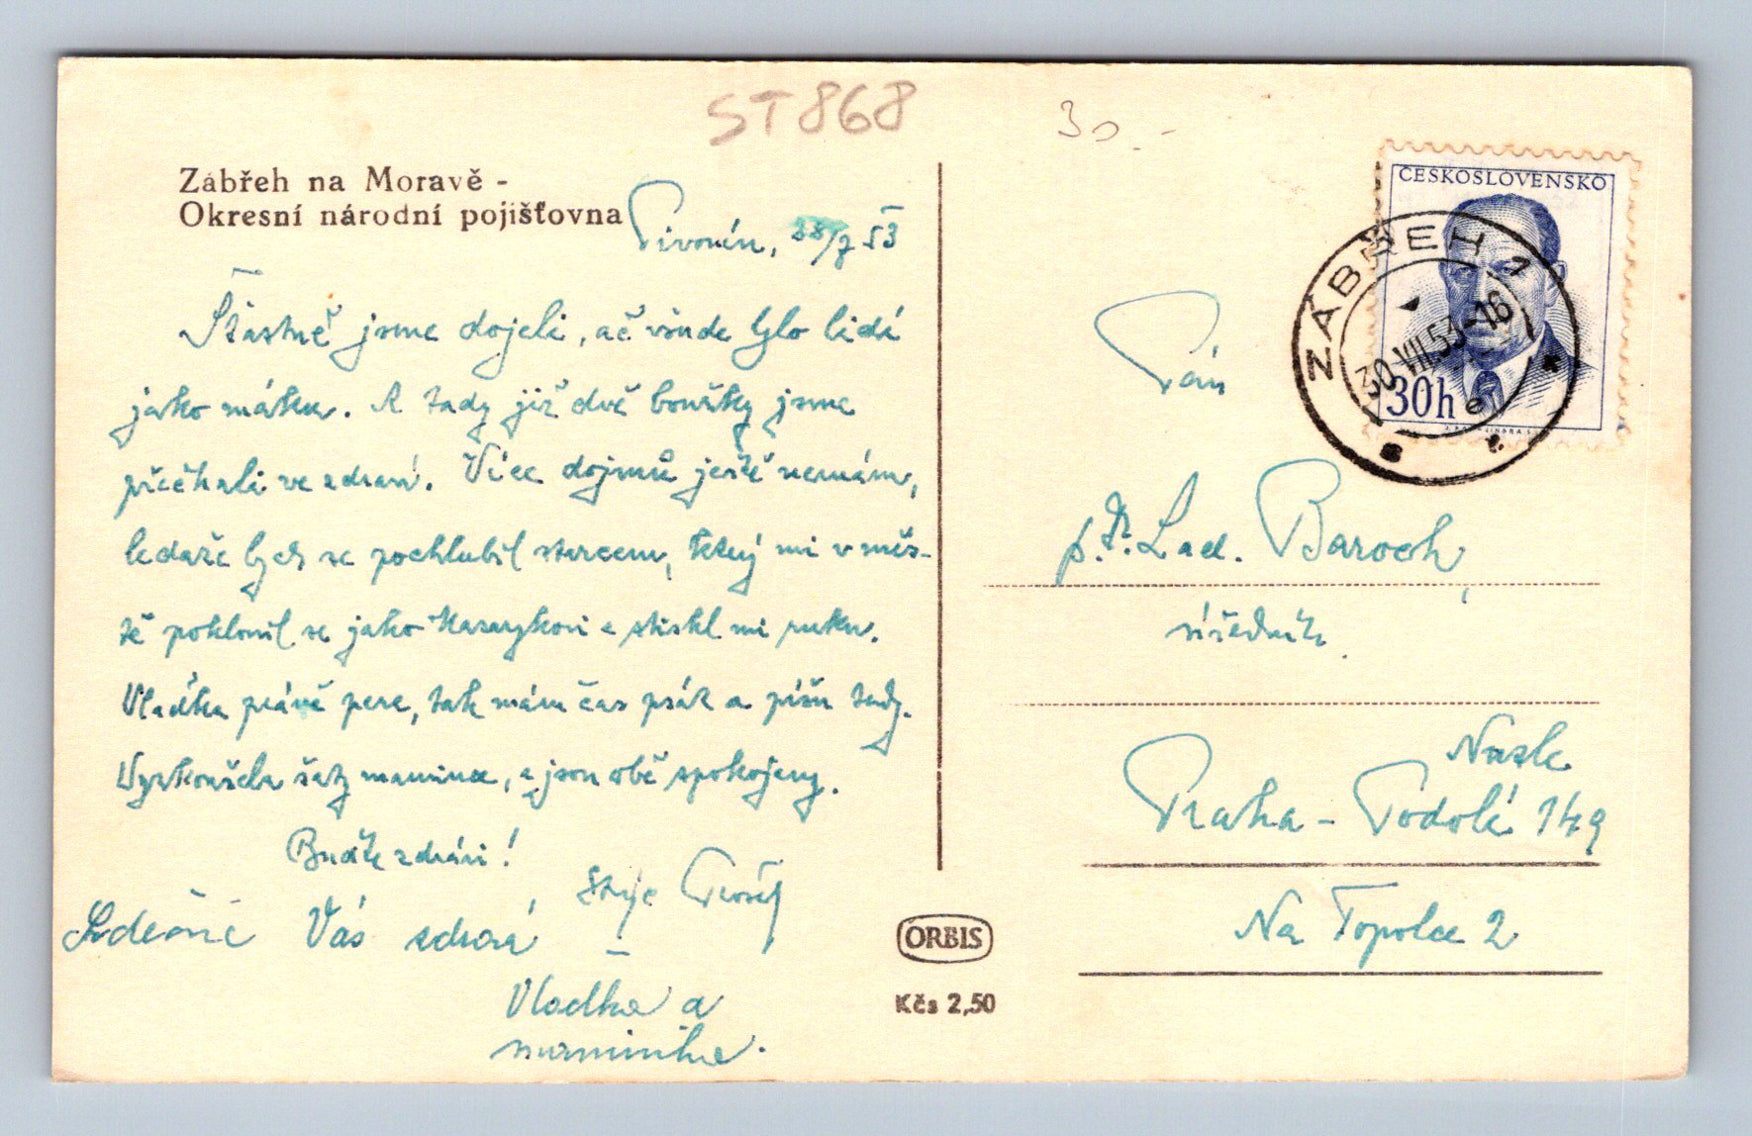 ST868
30.-
Zábřeh na Moravě -
Okresní národní pojišťovna
Pivonín, 28/7 53
Šťastně jsme dojeli, ač všude bylo lidí
jako máku. A tady již dvě bouřky jsme
přečkali ve zdraví. Více dojmů ještě nemám,
ledaže bych se pochlubil starcem, který mi v měs-
tě poklonil se jako Masarykovi a stiskl mi ruku.
Vlaďka právě pere, tak mám čas psát a píšu tedy.
Vyzkoušela šaty mamince, a jsou obě spokojeny.
Buďte zdrávi!
Srdečně Vás zdraví
Vladka a
maminka.
ČESKOSLOVENSKO
30h
ZÁBŘEH 1
30.VII.53-16
e
Pán
p. Dr. Lad. Baroch,
úředník.
Nusle
Praha - Podolí 149
Na Topolce 2
ORBIS
Kčs 2,50